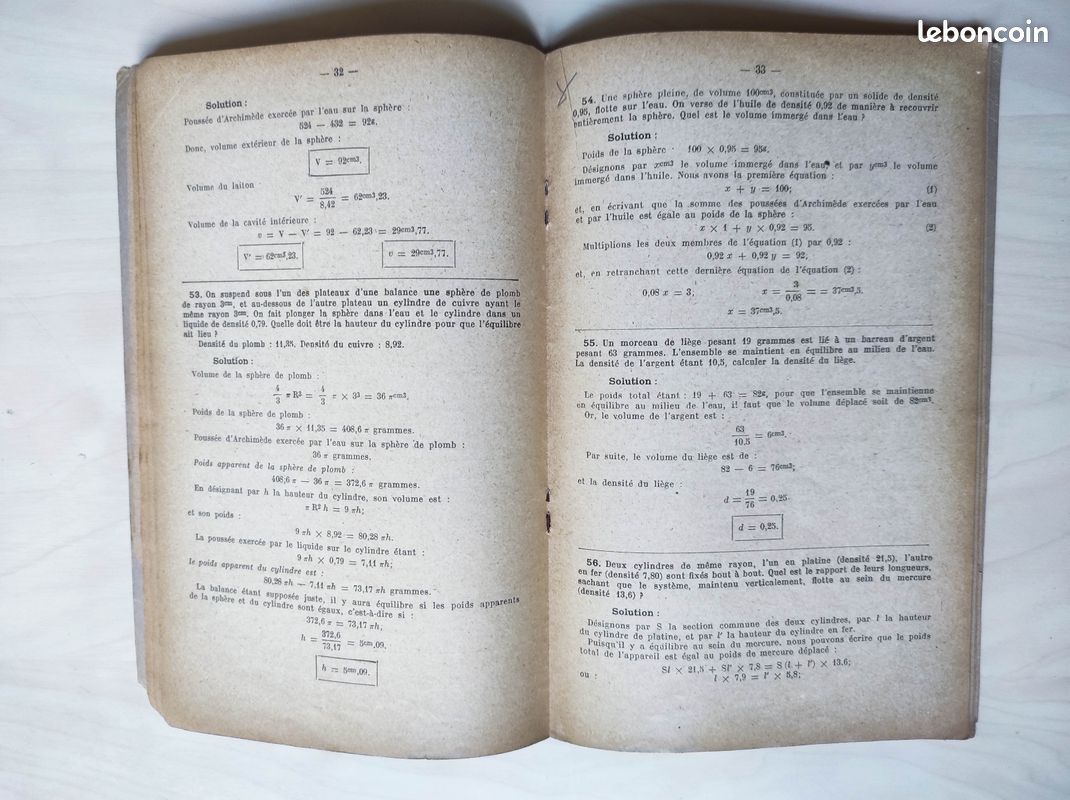 leboncoin
— 32 —
Solution :
Poussée d'Archimède exercée par l'eau sur la sphère :
524 — 432 = 92g.
Donc, volume extérieur de la sphère :
V = 92cm3.
Volume du laiton
V' = 524 / 8,42 = 62cm3,23.
Volume de la cavité intérieure :
v = V — V' = 92 — 62,23 = 29cm3,77.
V' = 62cm3,23. v = 29cm3,77.
53. On suspend sous l'un des plateaux d'une balance une sphère de plomb
de rayon 3cm, et au-dessous de l'autre plateau un cylindre de cuivre ayant le
même rayon 3cm. On fait plonger la sphère dans l'eau et le cylindre dans un
liquide de densité 0,79. Quelle doit être la hauteur du cylindre pour que l'équilibre
ait lieu ?
Densité du plomb : 11,35. Densité du cuivre : 8,92.
Solution :
Volume de la sphère de plomb :
4/3 π R3 = 4/3 π × 33 = 36 πcm3.
Poids de la sphère de plomb :
36 π × 11,35 = 408,6 π grammes.
Poussée d'Archimède exercée par l'eau sur la sphère de plomb :
36 π grammes.
Poids apparent de la sphère de plomb :
408,6 π — 36 π = 372,6 π grammes.
En désignant par h la hauteur du cylindre, son volume est :
π R2 h = 9 πh;
et son poids :
9 πh × 8,92 = 80,28 πh.
La poussée exercée par le liquide sur le cylindre étant :
9 πh × 0,79 = 7,11 πh;
le poids apparent du cylindre est :
80,28 πh — 7,11 πh = 73,17 πh grammes.
La balance étant supposée juste, il y aura équilibre si les poids apparents
de la sphère et du cylindre sont égaux, c'est-à-dire si :
372,6 π = 73,17 πh,
h = 372,6 / 73,17 = 5cm,09.
h = 5cm,09.
— 33 —
54. Une sphère pleine, de volume 100cm3, constituée par un solide de densité
0,95, flotte sur l'eau. On verse de l'huile de densité 0,92 de manière à recouvrir
entièrement la sphère. Quel est le volume immergé dans l'eau ?
Solution :
Poids de la sphère 100 × 0,95 = 95g.
Désignons par xcm3 le volume immergé dans l'eau et par ycm3 le volume
immergé dans l'huile. Nous avons la première équation :
x + y = 100; (1)
et, en écrivant que la somme des poussées d'Archimède exercées par l'eau
et par l'huile est égale au poids de la sphère :
x × 1 + y × 0,92 = 95. (2)
Multiplions les deux membres de l'équation (1) par 0,92 :
0,92 x + 0,92 y = 92,
et, en retranchant cette dernière équation de l'équation (2) :
0,08 x = 3, x = 3 / 0,08 = = 37cm3,5.
x = 37cm3,5.
55. Un morceau de liège pesant 19 grammes est lié à un barreau d'argent
pesant 63 grammes. L'ensemble se maintient en équilibre au milieu de l'eau.
La densité de l'argent étant 10,5, calculer la densité du liège.
Solution :
Le poids total étant : 19 + 63 = 82g, pour que l'ensemble se maintienne
en équilibre au milieu de l'eau, il faut que le volume déplacé soit de 82cm3.
Or, le volume de l'argent est :
63 / 10,5 = 6cm3.
Par suite, le volume du liège est de :
82 — 6 = 76cm3;
et la densité du liège :
d = 19 / 76 = 0,25.
d = 0,25.
56. Deux cylindres de même rayon, l'un en platine (densité 21,5), l'autre
en fer (densité 7,80) sont fixés bout à bout. Quel est le rapport de leurs longueurs,
sachant que le système, maintenu verticalement, flotte au sein du mercure
(densité 13,6) ?
Solution :
Désignons par S la section commune des deux cylindres, par l la hauteur
du cylindre de platine, et par l' la hauteur du cylindre en fer.
Puisqu'il y a équilibre au sein du mercure, nous pouvons écrire que le poids
total de l'appareil est égal au poids de mercure déplacé :
Sl × 21,5 + Sl' × 7,8 = S (l + l') × 13,6;
ou : l × 7,9 = l' × 5,8;